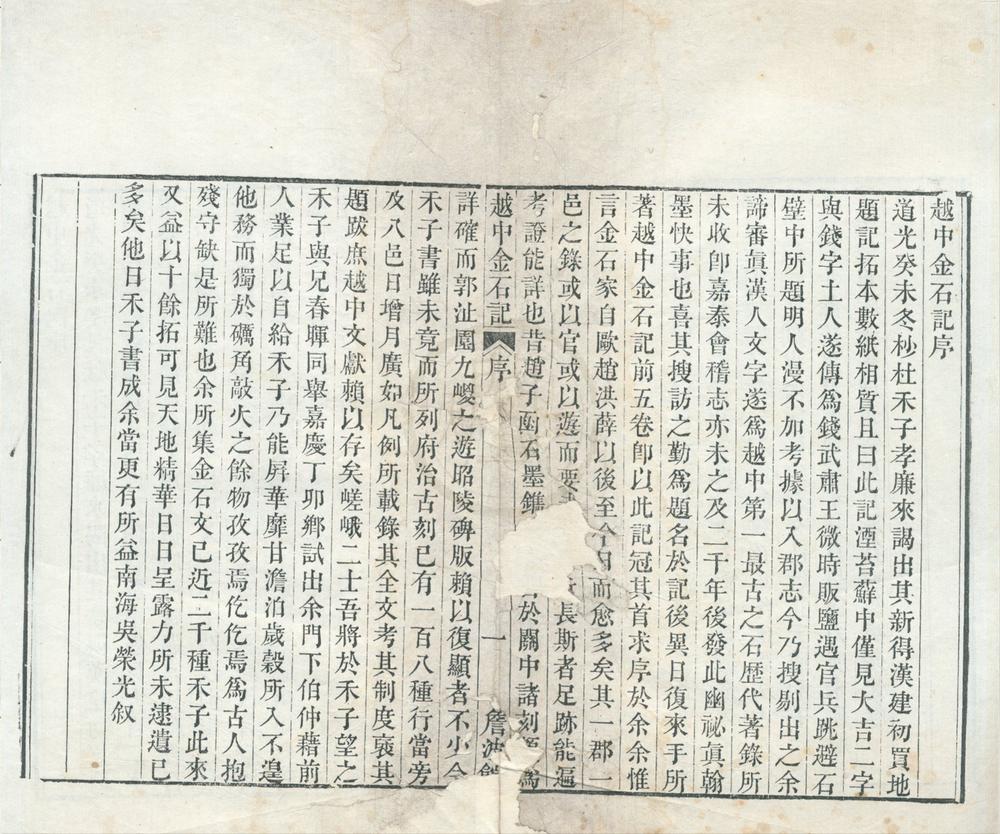 越中金石記序
道光癸未冬杪杜禾子孝廉來謁出其新得漢建初買地
題記拓本數紙相質且曰此記湮苔蘚中僅見大吉二字
與錢字土人遂傳爲錢武肅王微時販鹽遇官兵跳避石
壁中所題明人漫不加考據以入郡志今乃搜剔出之余
諦審眞漢人文字遂爲越中第一最古之石歷代著錄所
未收卽嘉泰會稽志亦未之及二千年後發此幽祕眞翰
墨快事也喜其搜訪之勤爲題名於記後異日復來手所
著越中金石記前五卷卽以此記冠其首求序於余余惟
言金石家自歐趙洪薛以後至今日而愈多矣其一郡一
邑之錄或以官或以遊而要 長斯者足跡能遍
考證能詳也昔趙子函石墨鐫 於關中諸刻 爲
越中金石記 序 一 詹波館
詳確而郭沚園九嵕之遊昭陵碑版賴以復顯者不少今
禾子書雖未竟而所列府治古刻已有一百八種行當旁
及八邑日增月廣如凡例所載錄其全文考其制度裒其
題跋庶越中文獻賴以存矣嵯峨二士吾將於禾子望之
禾子與兄春暉同舉嘉慶丁卯鄉試出余門下伯仲藉前
人業足以自給禾子乃能屛華靡甘澹泊歲穀所入不遑
他務而獨於礪角敲火之餘物孜孜焉仡仡焉爲古人抱
殘守缺是所難也余所集金石文已近二千種禾子此來
又益以十餘拓可見天地精華日日呈露力所未逮遺已
多矣他日禾子書成余當更有所益南海吳榮光叙